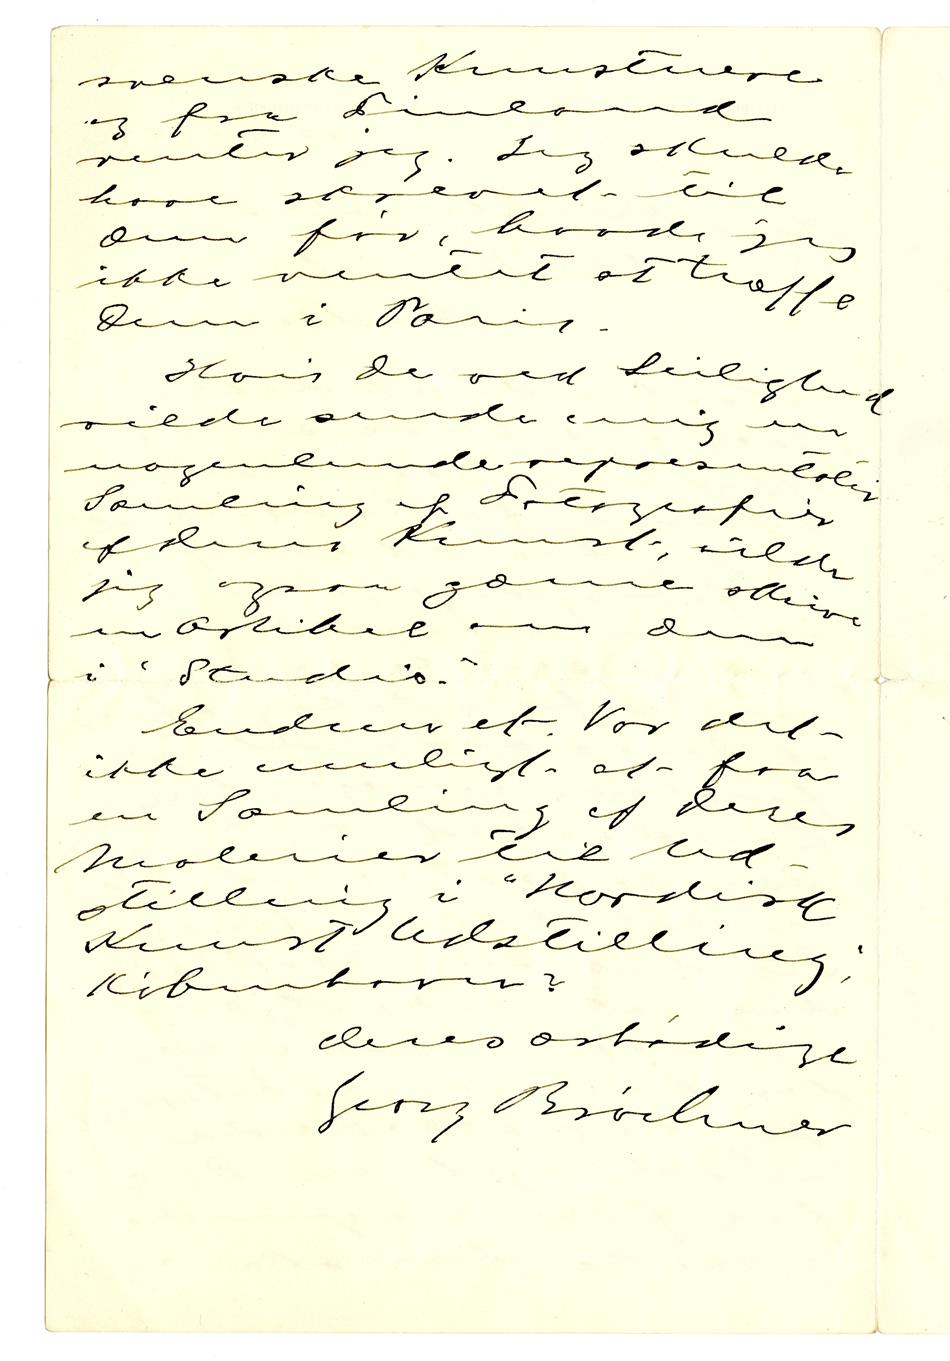 svenske Kunstnere
og fra Finland
venter jeg. Jeg skulde
have skrevet til
Dem før, havde jeg
ikke ventet at træffe
Dem i Paris.
Hvis De ved Leilighed
vilde sende mig en
nogenlunde repræsentativ
Samling af Fotografier
af deres Kunst, vilde
jeg ogsaa gærne skrive
en Artikel om Dem
i "Studio".
Endnu et. Var det
ikke muligt at faa
en Samling af deres
Malerier til Ud-
stilling i "Nordisk
Kunst Udstilling" i
København?
deres ærbødige
Georg Bröchner